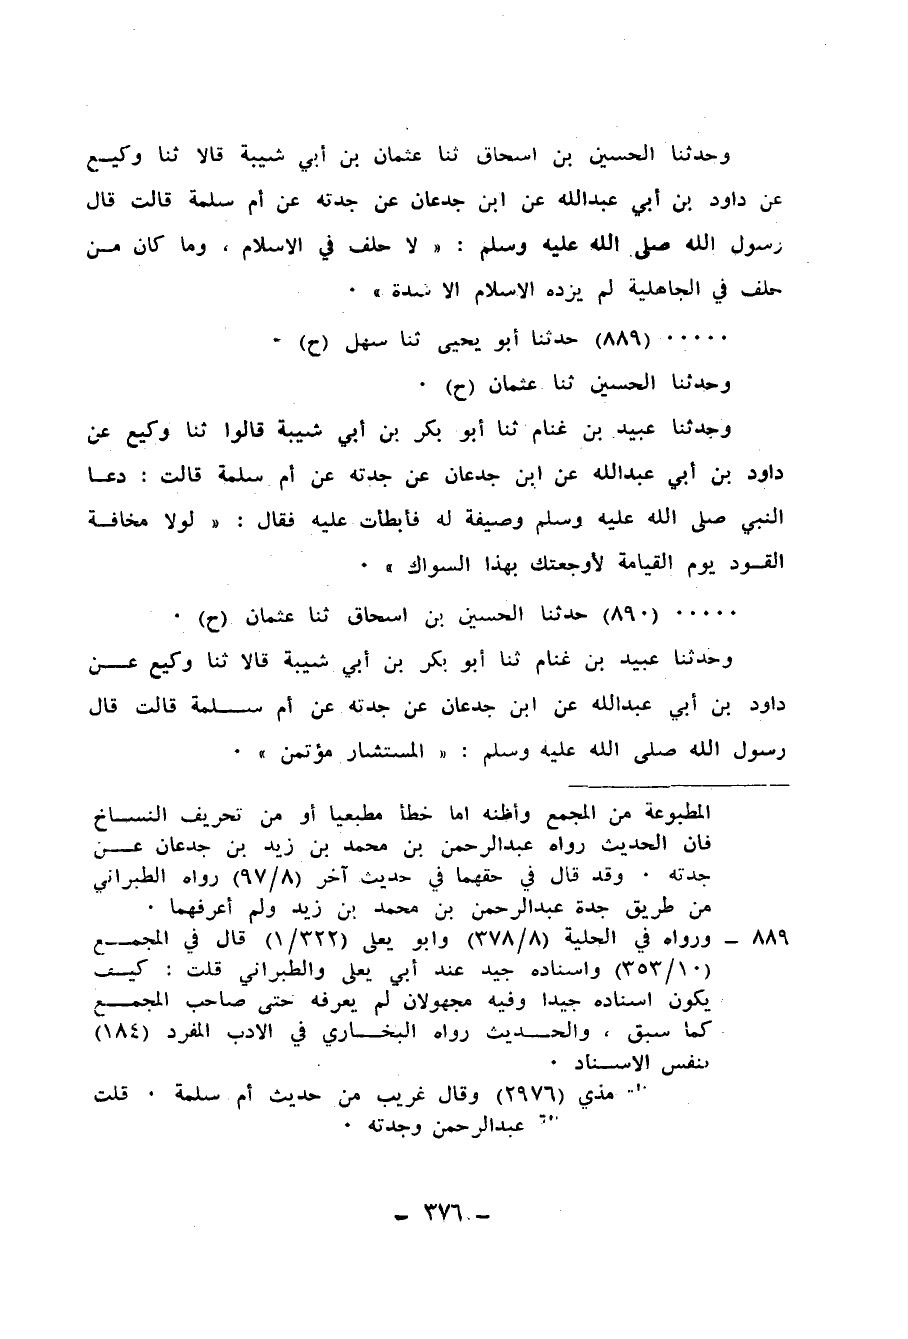 وحدثنا الحسين بن اسحاق ثنا عثمان بن أبي شيبة قالا ثنا وكيـع
عن داود بن أبي عبدالله عن ابن جدعان عن جدته عن أم سلمة قالت قال
رسول الله صلى الله عليه وسلم : « لا حلف في الاسلام ، وما كان مـن
حلف في الجاهلية لم يزده الاسلام الا شدة » ٠
٠٠٠٠٠ (٨٨٩) حدثنا أبو يحيى ثنا سهل (ح) ٠
وحدثنا الحسين ثنا عثمان (ح) ٠
وحدثنا عبيد بن غنام ثنا أبو بكر بن أبي شيبة قالوا ثنا وكيع عن
داود بن أبي عبدالله عن ابن جدعان عن جدته عن أم سلمة قالت : دعـا
النبي صلى الله عليه وسلم وصيفة له فأبطأت عليه فقال : « لولا مخافـة
القـود يوم القيامة لأوجعتك بهذا السواك » ٠
٠٠٠٠٠ (٨٩٠) حدثنا الحسين بن اسحاق ثنا عثمان (ح) ٠
وحدثنا عبيد بن غنام ثنا أبو بكر بن أبي شيبة قالا ثنا وكيع عـــن
داود بن أبي عبدالله عن ابن جدعان عن جدته عن أم ســـلمة قالت قال
رسول الله صلى الله عليه وسلم : « المستشار مؤتمن » ٠
المطبوعة من المجمع وأظنه اما خطأ مطبعيا أو من تحريف النســـاخ
فان الحديث رواه عبدالرحمن بن محمد بن زيد بن جدعان عـــن
جدته ٠ وقد قال في حقهما في حديث آخر (٩٧/٨) رواه الطبراني
من طريق جدة عبدالرحمن بن محمد بن زيد ولم أعرفهما ٠
٨٨٩ ـ ورواه في الحلية (٣٧٨/٨) وابو يعلى (١/٣٢٢) قال في المجمـــع
(٣٥٣/١٠) واسناده جيد عند أبي يعلى والطبراني قلت : كيـــف
يكون اسناده جيدا وفيه مجهولان لم يعرفه حتى صاحب المجمـــع
كما سبق ، والحـــديث رواه البخـــاري في الادب المفرد (١٨٤)
بنفس الاســـناد ٠
مذي (٢٩٧٦) وقال غريب من حديث أم سلمة ٠ قلت
عبدالرحمن وجدته ٠
ـ ٣٧٦ ـ